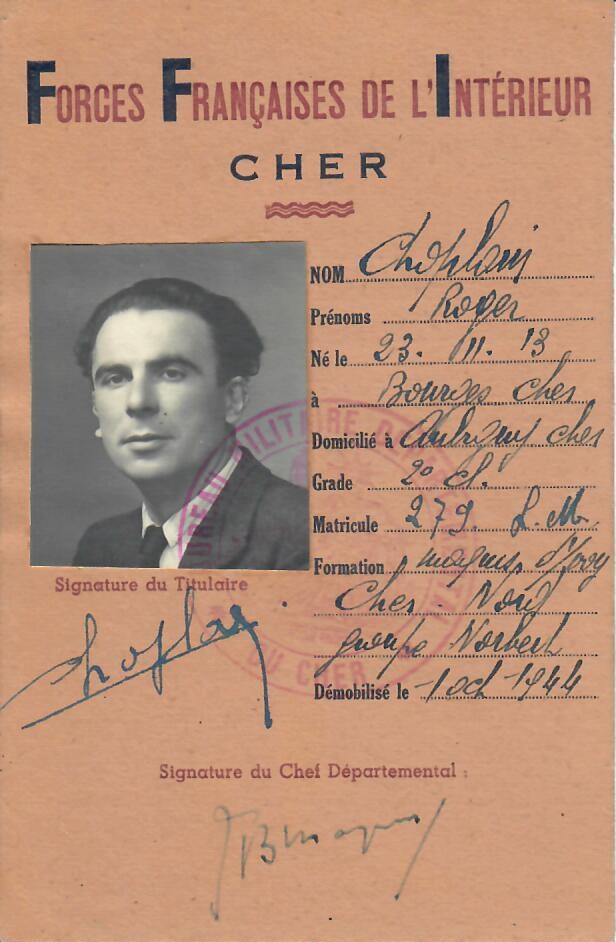 FORCES FRANÇAISES DE L'INTÉRIEUR
CHER
NOM Choplain
Prénoms Roger
Né le 23. 11. 13
à Bourges Cher
Domicilié à Aubigny Cher
Grade 2º Cl.
Matricule 279. L. M.
Formation maquis d'Ivoy
Cher - Nord
groupe Norbert
Démobilisé le 1 oct 1944
Signature du Titulaire
Choplain
Signature du Chef Départemental :
BUREAU MILITAIRE
DU CHER